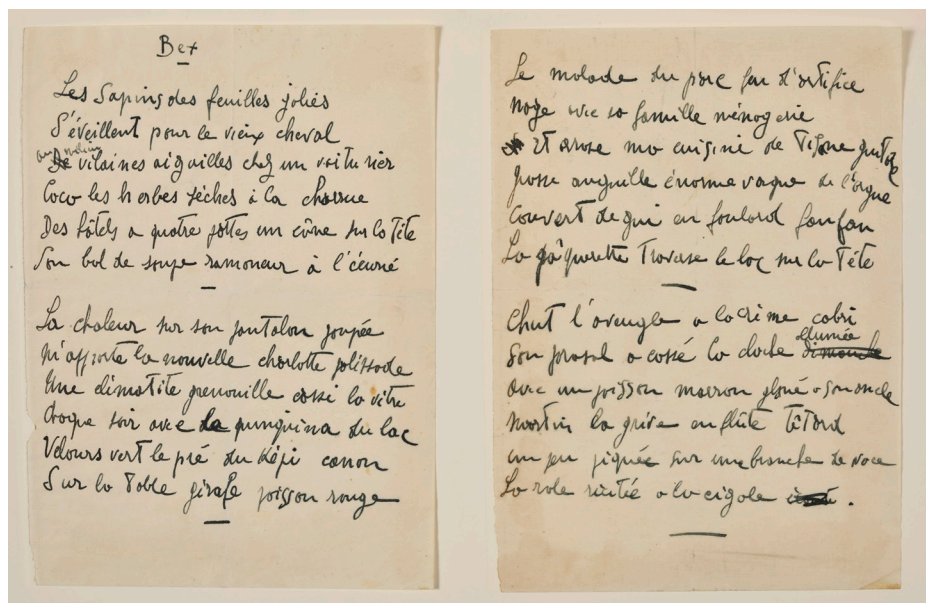 Bex
Les Sapins des feuilles jolies
S'éveillent pour le vieux cheval
De vilaines aiguilles chez un voiturier
Coco les herbes sèches à la charrue
Des hôtels a quatre pattes un cône sur la tête
Son bol de soupe ramoneur à l'
La chaleur sur son pantalon poupée
M'apporte la nouvelle charlotte
Une grenouille la vitre
Croque soir avec quinquina du lac
Velours vert le pré du képi canon
Sur la Table girafe poisson rouge
Le malade du parc feu d'artifice
Nage avec sa famille ménagerie
Et arrose ma cuisine de Tisane
grosse anguille énorme vague de l'orgue
Couvert de gui en foulard fanfan
La pâquerette Traverse le lac sur la Tête
Chut l'aveugle a la crème cabri
allumée
Son a cassé la cloche dimanche
avec un poisson marron glacé a son oncle
Martin la grive en flûte têtard
un peu piquée sur une branche de
La a la cigale